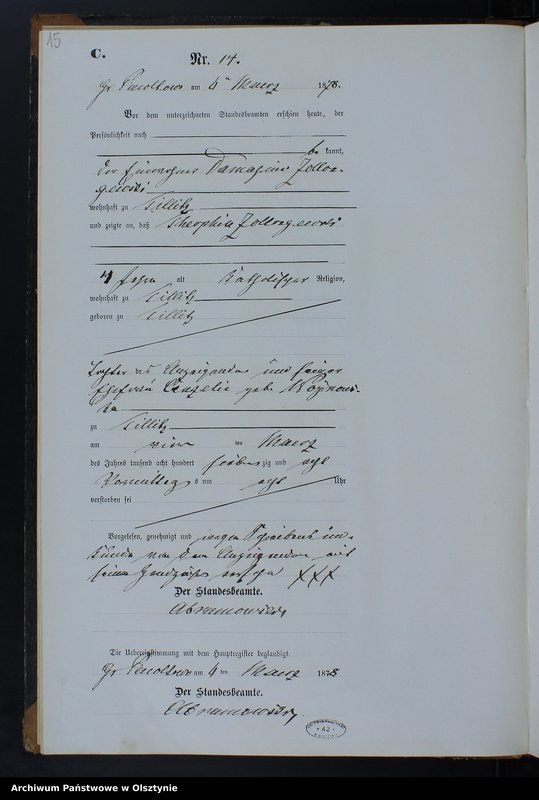 15
C.
Nr. 14.
Gr. am 4ten Maerz 1878.
Vor dem unterzeichneten Standesbeamten erschien heute, der
Persönlichkeit nach
be kannt,
der Einwohner
wohnhaft zu Tillitz
und zeigte an, daß Theophila
4 Jahre alt katholischer Religion,
wohnhaft zu Tillitz
geboren zu Tillitz
Tochter des Anzeigenden und seiner
Ehefrau geb.
zu Tillitz
am vier ten Maerz
des Jahres tausend acht hundert siebenzig und acht
Vormittags um acht Uhr
verstorben sei
Vorgelesen, genehmigt und wegen Schreibens un-
kunde von dem Anzeigenden mit
seinem Handzeichen versehen XXX
Der Standesbeamte.
Abramowski
Die Uebereinstimmung mit dem Hauptregister beglaubigt.
Gr. am 4 ten Maerz 1878
Der Standesbeamte.
Abramowski
42
Archiwum Państwowe w Olsztynie